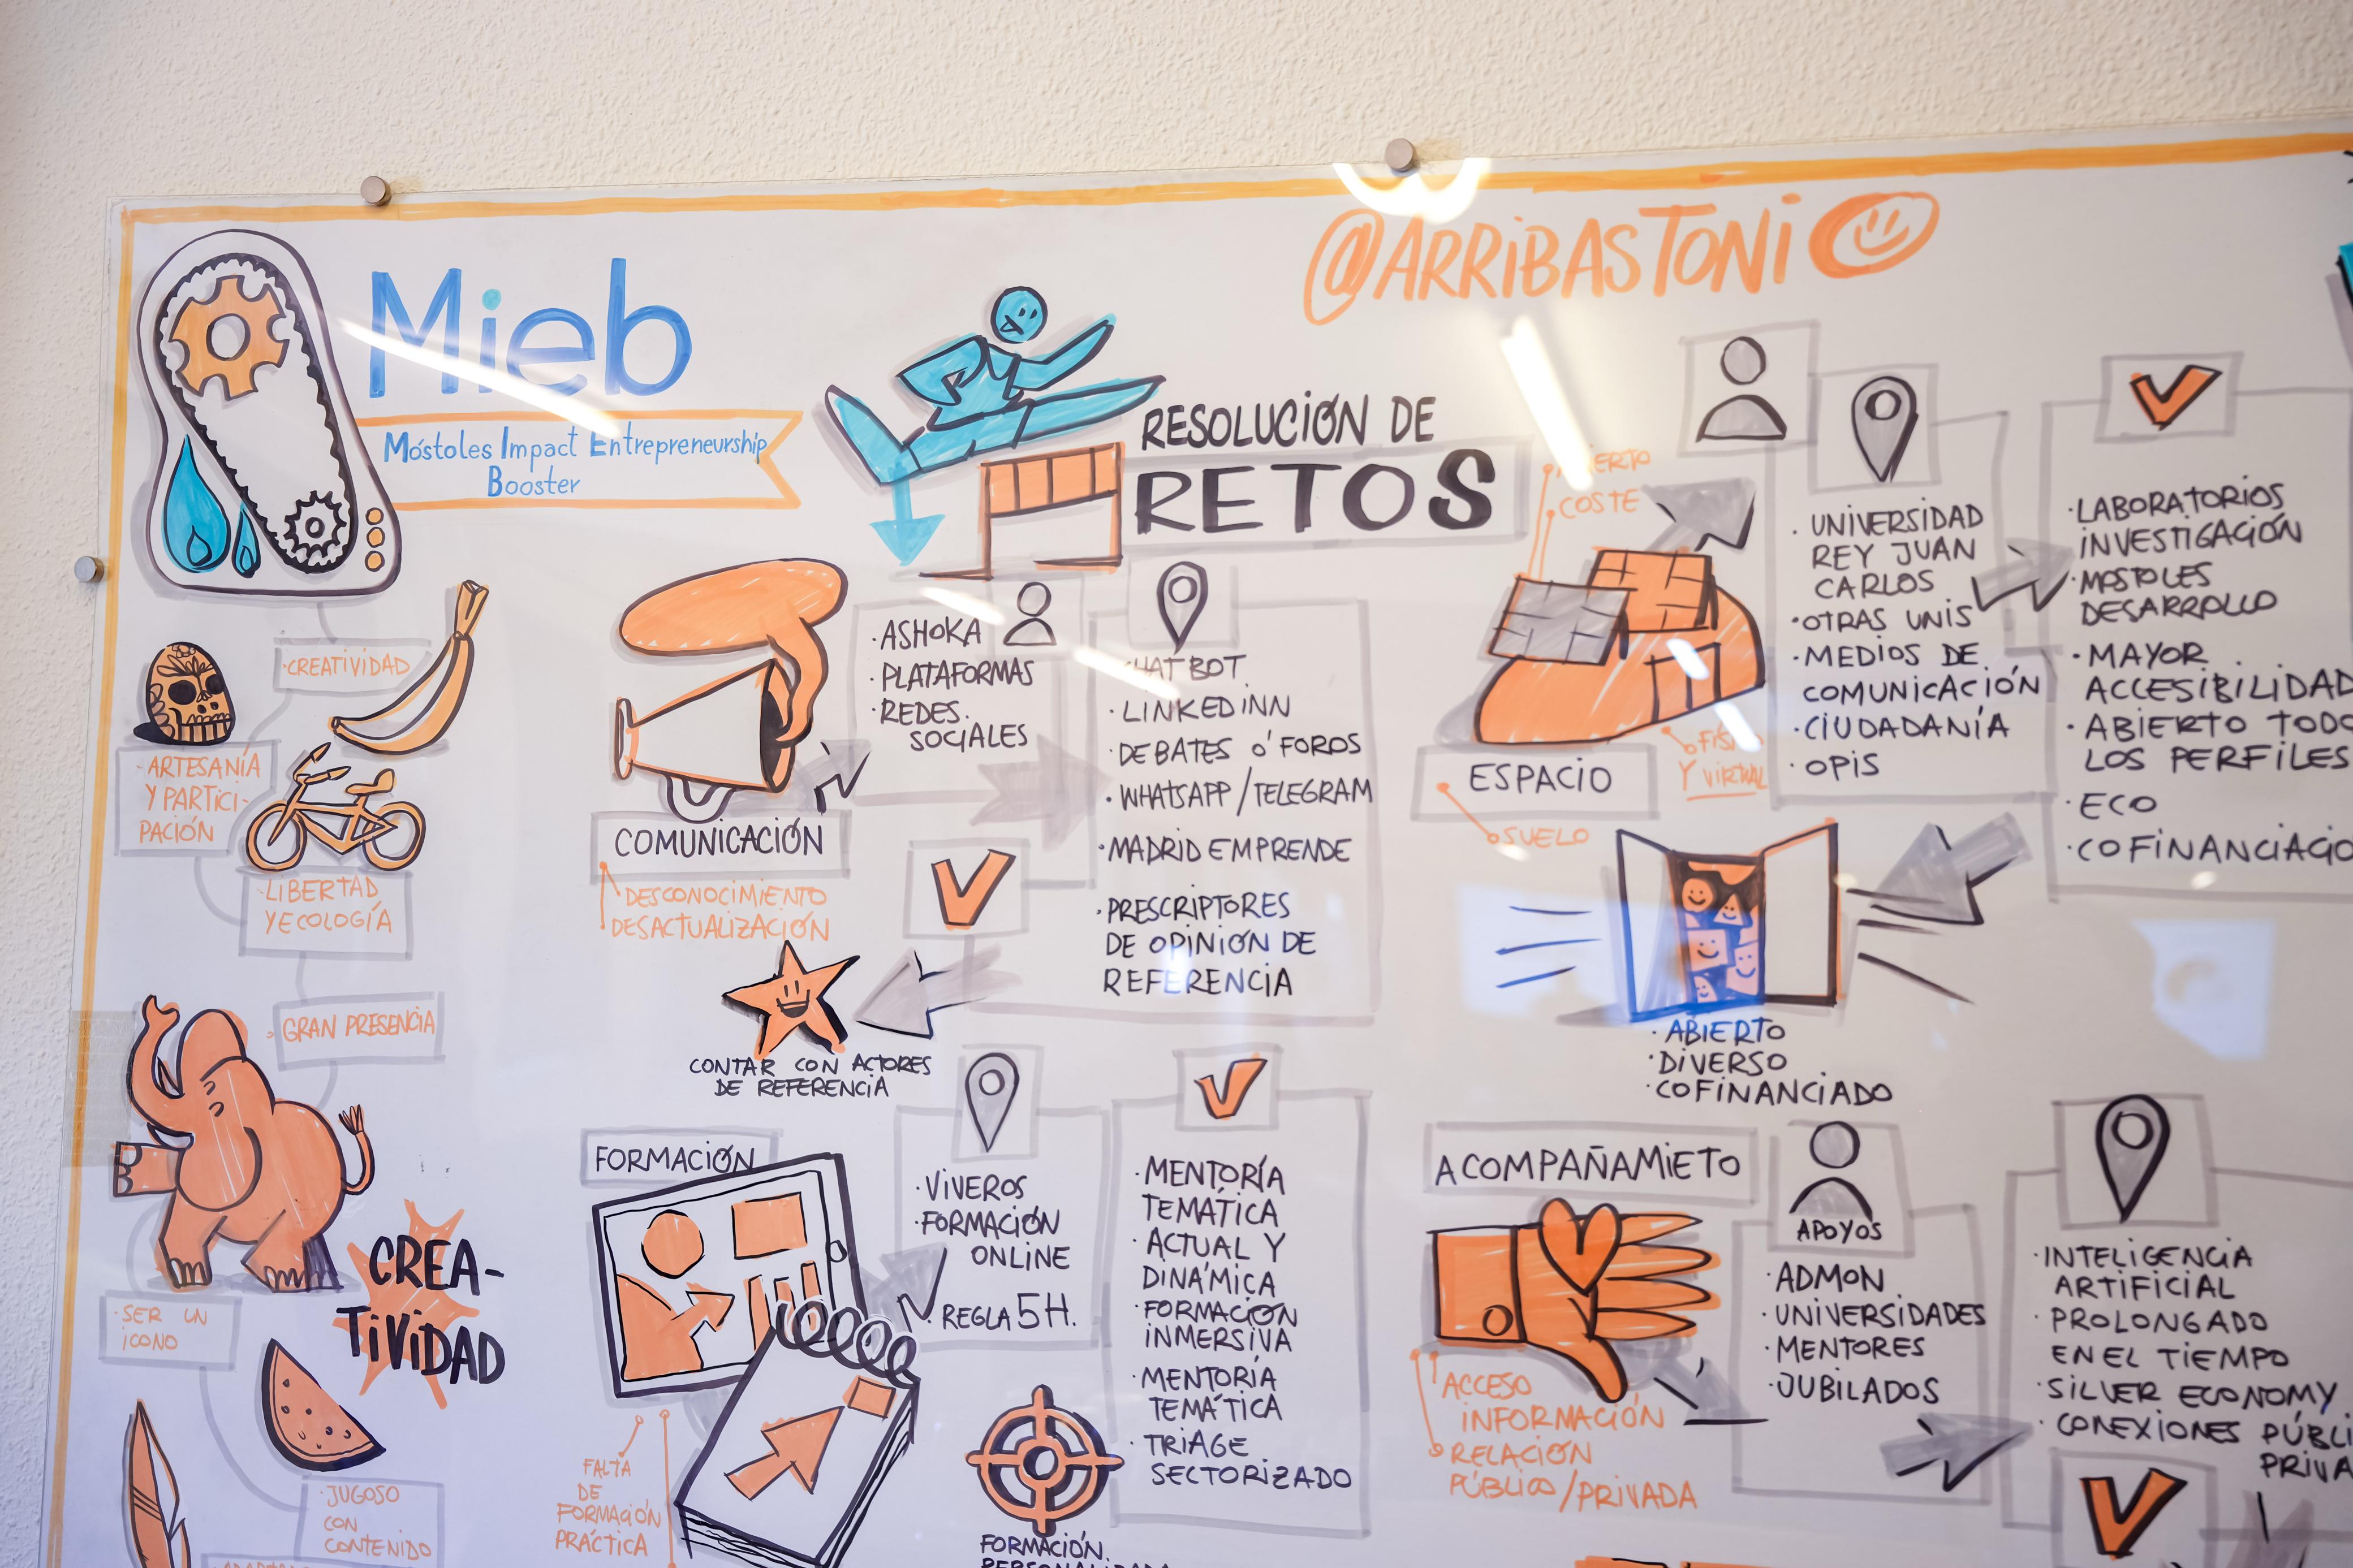 @ARRiBASTONi
Mieb
Móstoles Impact Entrepreneurship
Booster
·CREATiViDAD
·ARTESANÍA
Y PARTICI-
PACIÓN
·LIBERTAD
Y ECOLOGÍA
GRAN PRESENCIA
·SER UN
iCONO
CREA-
TiViDAD
·JUGOSO
CON
CONTENIDO
RESOLUCIÓN DE
RETOS
COMUNICACIÓN
DESCONOCIMIENTO
DESACTUALIZACIÓN
·ASHOKA
·PLATAFORMAS
·REDES
SOCIALES
HATBOT
·LINKEDINN
·DEBATES O' FOROS
·WHATSAPP/TELEGRAM
·MADRID EMPRENDE
·PRESCRIPTORES
DE OPINIÓN DE
REFERENCIA
CONTAR CON ACTORES
DE REFERENCIA
FORMACIÓN
FALTA
DE
FORMACIÓN
PRÁCTICA
·VIVEROS
·FORMACIÓN
ONLINE
·REGLA 5H.
·MENTORÍA
TEMÁTICA
·ACTUAL Y
DINÁMICA
·FORMACIÓN
INMERSIVA
·MENTORÍA
TEMÁTICA
·TRIAGE
SECTORIZADO
FORMACIÓN
ESPACIO
COSTE
Y VIRTUAL
SUELO
·UNIVERSIDAD
REY JUAN
CARLOS
·OTRAS UNIS
·MEDIOS DE
COMUNICACIÓN
·CIUDADANÍA
·OPIS
·LABORATORIOS
INVESTIGACIÓN
·MOSTOLES
DESARROLLO
·MAYOR
ACCESIBILIDAD
·ABIERTO TODO
LOS PERFILES
·ECO
·COFINANCIACIO
·ABIERTO
·DIVERSO
·COFINANCIADO
ACOMPAÑAMIETO
ACCESO
INFORMACIÓN
RELACIÓN
PÚBLICO/PRIVADA
APOYOS
·ADMON
·UNIVERSIDADES
·MENTORES
·JUBILADOS
·INTELIGENCIA
ARTIFICIAL
·PROLONGADO
EN EL TIEMPO
·SILVER ECONOMY
·CONEXIONES PÚBLI
PRIVA